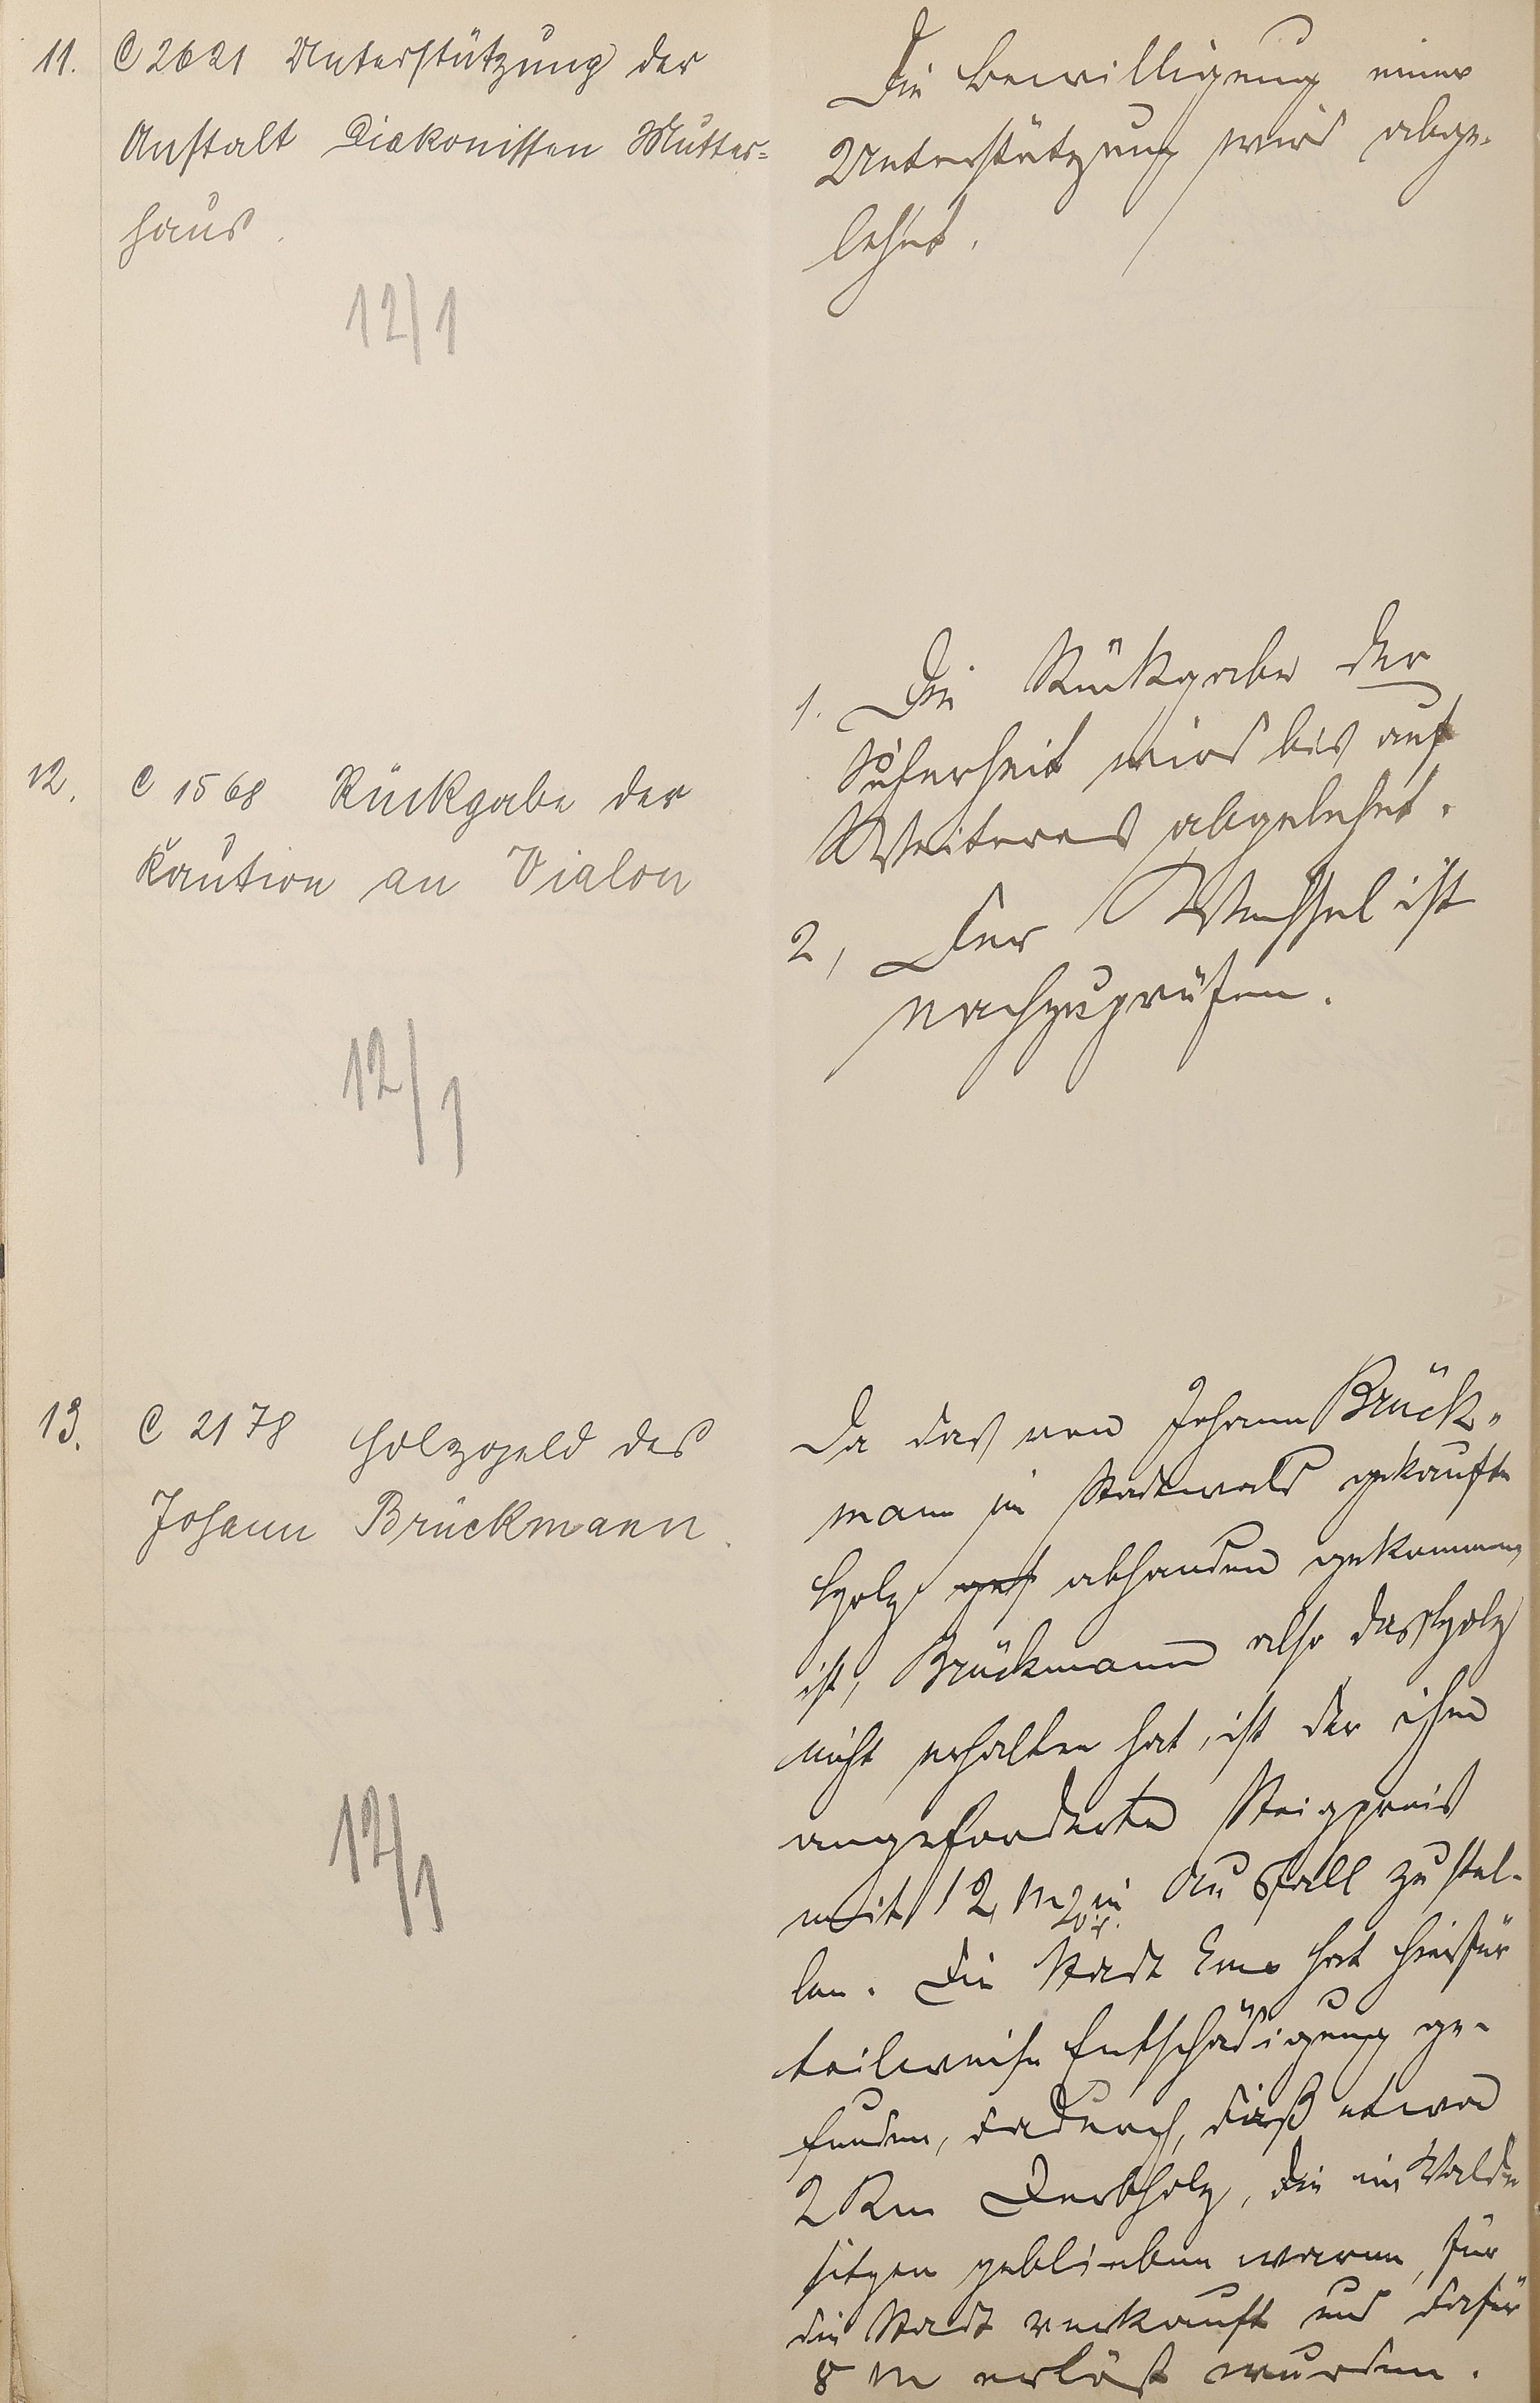 11. C 2621 Unterstützung der
Anstalt Diakonissen Mutter=
haus.
12/1
Die Bewilligung einer
Unterstützung wird abge-
lehnt.
12. C 1568 Rückgabe der
Kaution an Vialon
12/1
1. Die Rückgabe der
Sicherheit wird bis auf
Weiteres abgelehnt.
2, Der Wechsel ist
nachzuprüfen.
13. C 2178 Holzgeld des
Johann Brückmann.
12/1
Da das von Johann Brück-
mann im Stadtwald gekaufte
Holz abhanden gekommen
ist, Brückmann also das Holz
nicht erhalten hat, ist der ihm
angeforderte Steigpreis
mit 12 M in Ausfall zu stel-
len. Die Stadt Ems hat hierfür
teilweise Entschädigung ge-
funden, dadurch, daß etwa
2 Rm Derbholz, die im Walde
sitzen geblieben waren, für
die Stadt verkauft und dafür
8 M erlöst wurden.